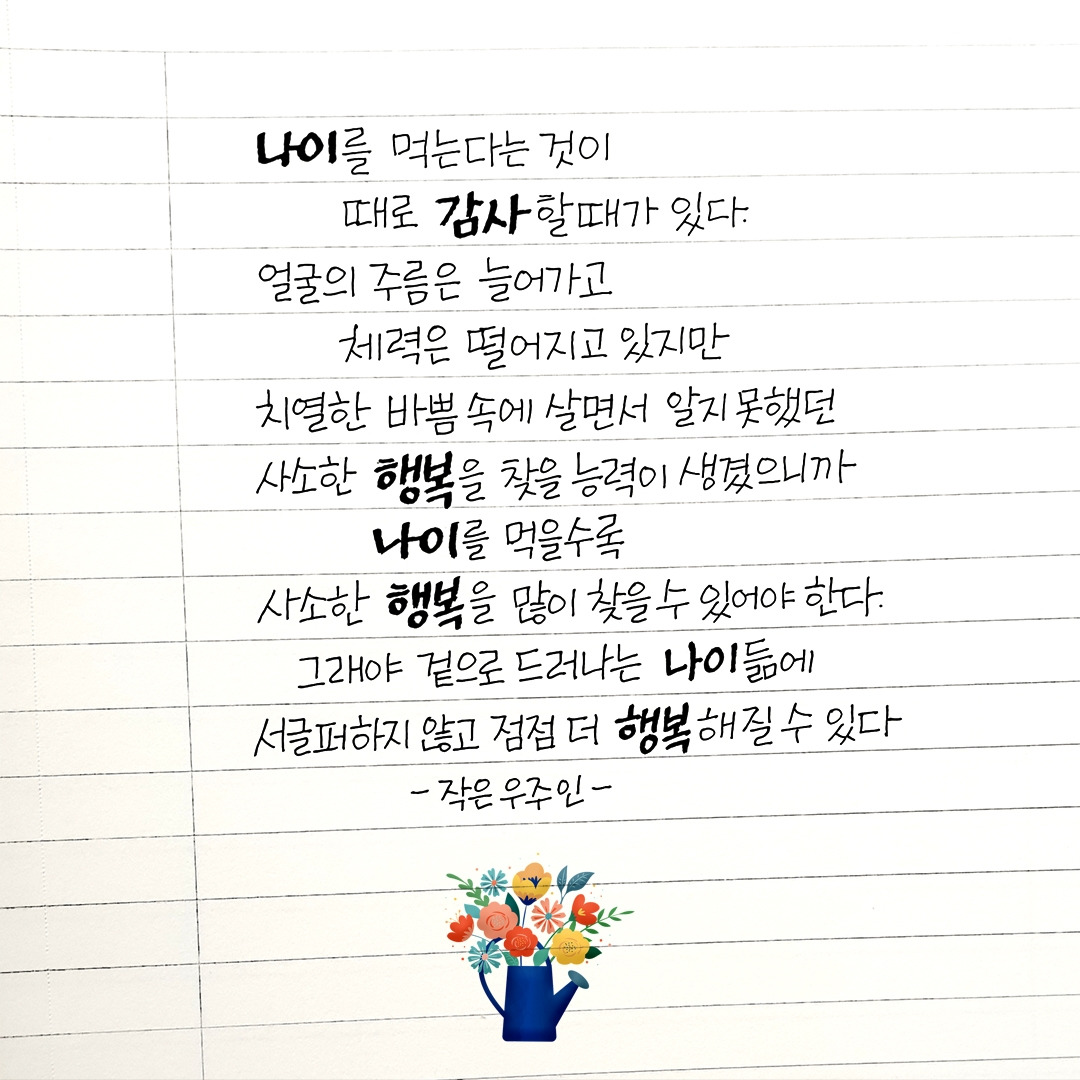 나이를 먹는다는 것이
때로 감사할 때가 있다.
얼굴의 주름은 늘어가고
체력은 떨어지고 있지만
치열한 바쁨 속에 살면서 알지 못했던
사소한 행복을 찾을 능력이 생겼으니까
나이를 먹을수록
사소한 행복을 많이 찾을 수 있어야 한다.
그래야 겉으로 드러나는 나이듦에
서글퍼하지 않고 점점 더 행복해질 수 있다
-작은 우주인-